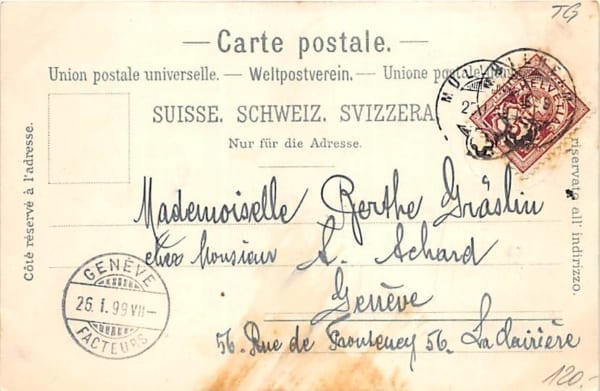 TG
— Carte postale. —
Union postale universelle. — Weltpostverein. — Unione postale
SUISSE. SCHWEIZ. SVIZZERA
Nur für die Adresse.
Côté réservé à l'adresse.
riservato all' indirizzo.
HELVETIA
Mademoiselle Berthe Gräslin
chez Monsieur A. Achard
Genève
56. Rue de Frontenex 56. La Clairière
GENÈVE
26.1.99 VII—
FACTEURS
120.-